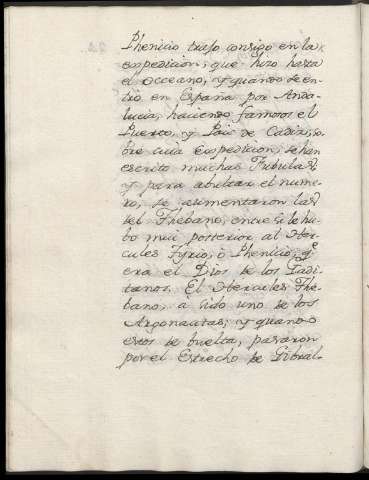 Phenicio trajo consigo en la
expedicion, que hizo hasta
el occeano, y quando se en-
tró en España por Anda-
lucia, haciendo famosos el
Puerto, y Pais de Cadiz, so-
bre cuia expedicion, se han
escrito muchas Fabulas,
y para abultar el nume-
ro, se aumentaron las
del Thebano, entre si le hu-
bo mui posterior al Her-
cules Tyrio, ò Phenicio, q.e
era el Dios de los Gadi-
tanos. El Hercules The-
bano, à sido uno de los
Argonautas; y quando
estos de buelta, pasaron
por el Estrecho de Gibral-